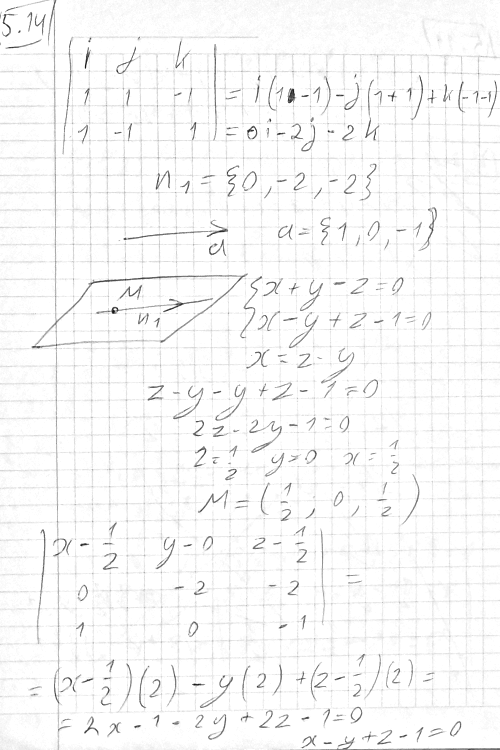 5.14
| i j k |
| 1 1 -1 | = i(1-1)-j(1+1)+k(-1-1)
| 1 -1 1 | = 0i-2j-2k
n₁ = {0, -2, -2}
a a = {1, 0, -1}
M n₁
{ x + y - z = 0
{ x - y + z - 1 = 0
x = z - y
z - y - y + z - 1 = 0
2z - 2y - 1 = 0
z = 1/2 y = 0 x = 1/2
M = (1/2; 0, 1/2)
| x - 1/2 y - 0 z - 1/2 |
| 0 -2 -2 | =
| 1 0 -1 |
= (x - 1/2)(2) - y(2) + (z - 1/2)(2) =
= 2x - 1 - 2y + 2z - 1 = 0
x - y + z - 1 = 0